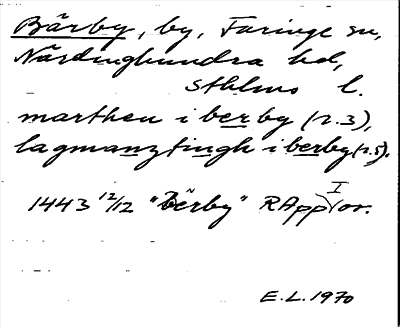 Bärby, by, Faringe sn,
Närdinghundra hd,
Sthlms l.
marthen i berby (r.3),
lagmanztingh i berby (r.5).
1443 12/12 "Bërby" RApp I or.
E.L. 1970